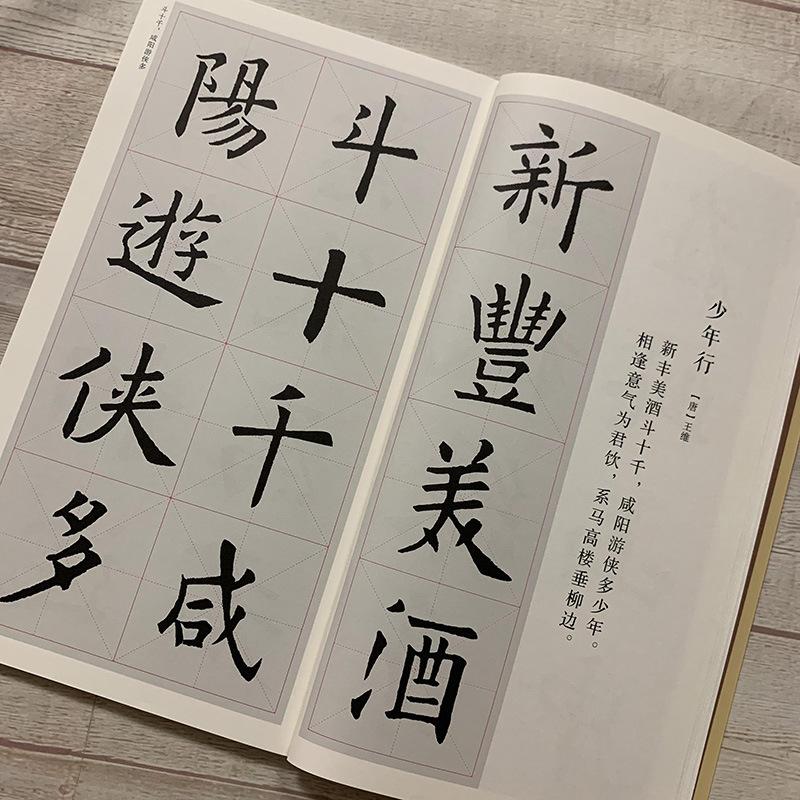 少年行
【唐】王维
新丰美酒斗十千，咸阳游侠多少年。
相逢意气为君饮，系马高楼垂柳边。
新豐美酒
斗十千咸
陽遊侠多
斗十千，咸阳游侠多